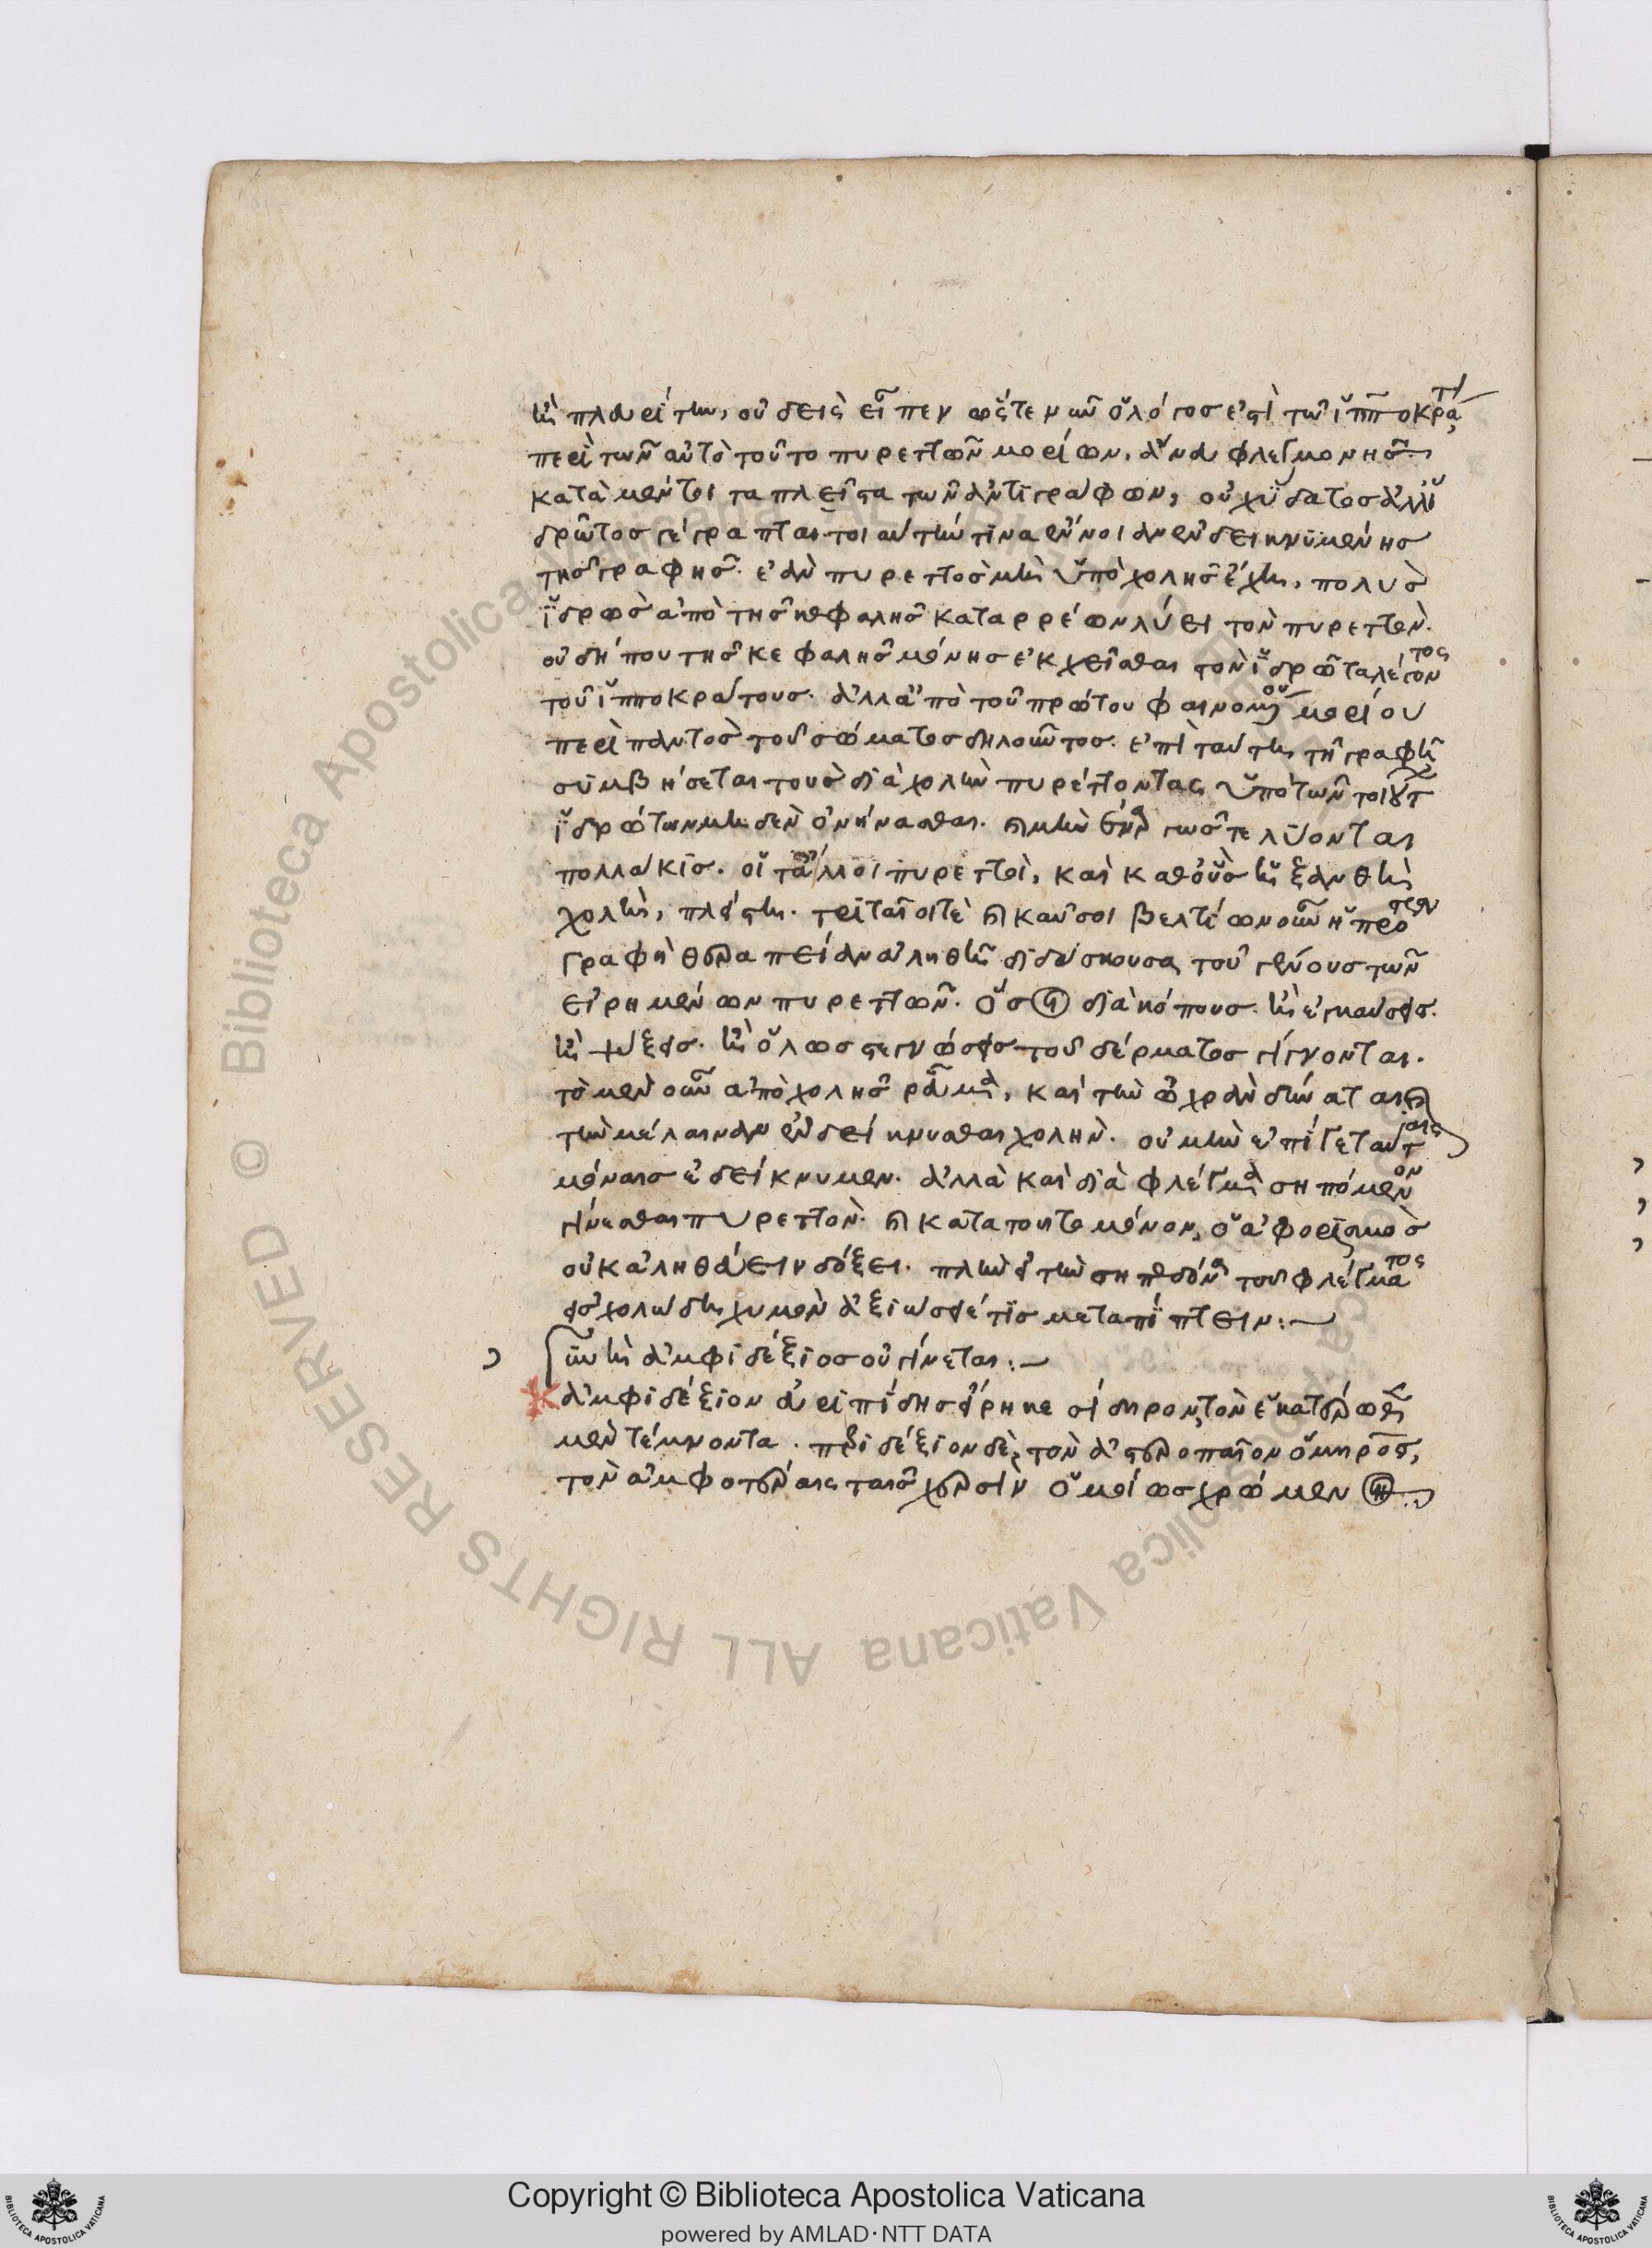 ἢ πλευρῖτιν, οὐδεὶς εἶπεν ὥστε νῦν ὁ λόγος ἐστὶ τῷ ἱπποκράτει
περὶ τῶν αὐτὸ τοῦτο πυρετῶν μορίων, ἄνευ φλεγμονῆς
κατὰ μέντοι τα πλεῖστα τῶν ἀντιγράφων, οὐχ ὕδατος ἀλλ' ἱ
δρῶτος γέγραπται τοιαύτην τινα ἔννοιαν ἐνδεικνυμένης
τῆς γραφῆς. ἐὰν πυρετὸς μὴ ὑπὸ χολῆς ἔχη, πολὺς
ἱδρὼς ἀπὸ τῆς κεφαλῆς καταρρέων λύει τὸν πυρετόν.
οὐ δήπου τῆς κεφαλῆς μόνης ἐκχεῖσθαι τὸν ἱδρῶτα λέγοντος
τοῦ ἱπποκράτους. ἀλλ' ἀπὸ τοῦ πρώτου φαινομένου μορίου
περὶ παντὸς τοῦ σώματος δηλοῦντος. ἐπὶ ταύτη τῆ γραφῆ
συμβήσεται τοὺς διὰ χολὴν πυρέττοντας ὑπὸ τῶν τοιούτ
ἱδρώτων μηδὲν ὀνήνασθαι. καὶ μὴν ἐναργῶς τε λύονται
πολλάκις. οἵ τ' ἄλλοι πυρετοὶ, καὶ καθ' οὓς ἡ ξανθὴ
χολὴ, πλείστη. τριταῖοί τε καὶ καῦσοι βελτίων οὖν ἡ προτέρα
γραφὴ θεραπείαν ἀληθῆ διδάσκουσα τοῦ γένους τῶν
εἰρημένων πυρετῶν. ὅσοι διὰ κόπους. ἢ ἐγκαύσεις.
ἢ ψύξεις. ἢ ὅλως στεγνώσεις τοῦ δέρματος γίγνονται.
τὸ μὲν οὖν ἀπὸ χολῆς ῥῆμα, καὶ τὴν ὠχρὰν δύναται καὶ
τὴν μέλαιναν ἐνδείκνυσθαι χολήν. οὐ μὴν ἐπί γε ταύταις
μόναις ἐδείκνυμεν. ἀλλὰ καὶ διὰ φλέγμα σηπόμενον
γίνεσθαι πυρετόν. καὶ κατὰ τοῦτο μόνον, ὁ ἀφορισμὸς
οὐκ ἀληθεύειν δόξει. πλὴν εἰ τὴν σηπεδόνα τοῦ φλέγματος
εἰς χολώδη χυμὸν ἀξιώσειέ τις μεταπίπτειν:
Γυνὴ ἀμφιδέξιος οὐ γίνεται:
ἀμφιδέξιον εὐριπίδης εἴρηκε σίδηρον, τὸν ἑκατέρωθεν
μὲν τέμνοντα. περιδέξιον δὲ, τὸν ἀστεροπαῖον ὅμηρος,
τὸν ἀμφοτέραις ταῖς χερσὶν ὁμοίως χρώμενον